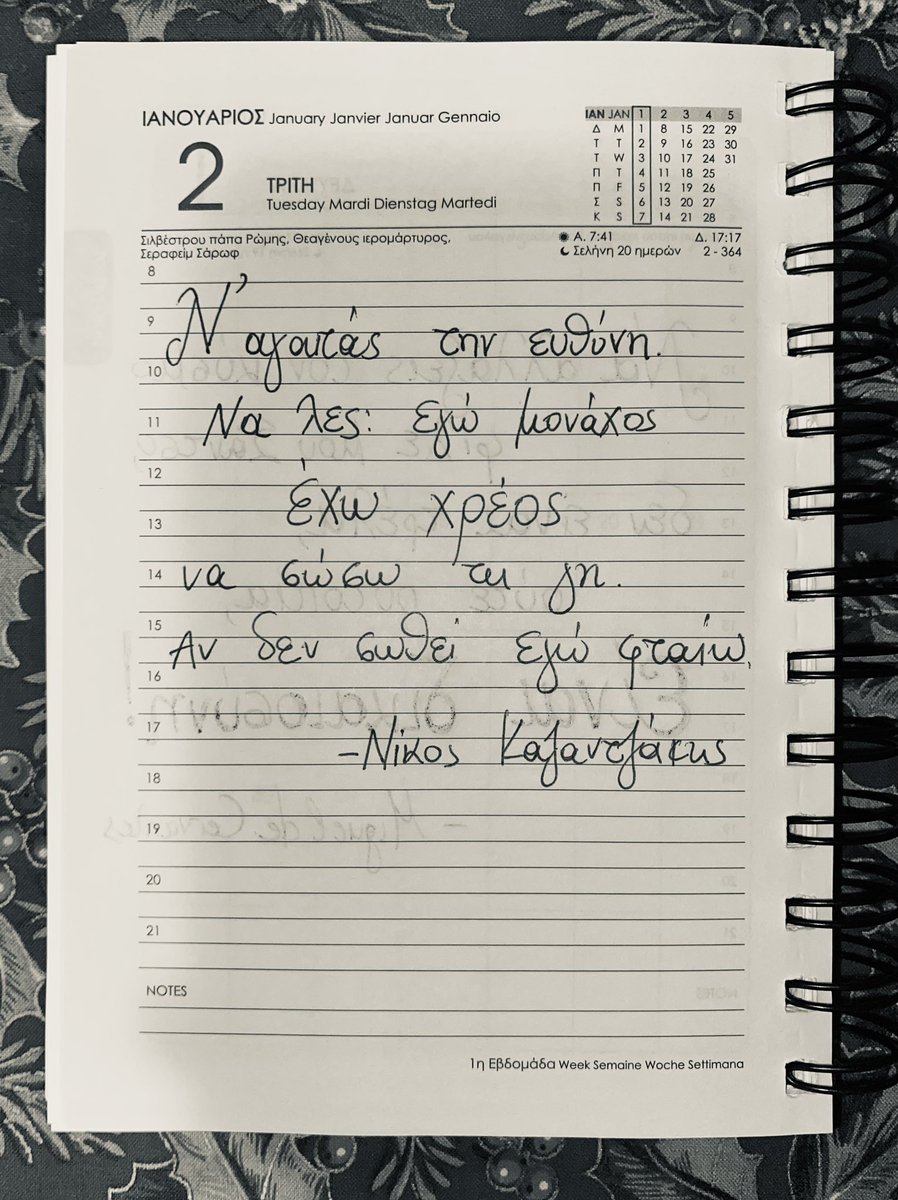 ΙΑΝΟΥΑΡΙΟΣ January Janvier Januar Gennaio
2
ΤΡΙΤΗ
Tuesday Mardi Dienstag Martedi
ΙΑΝ JAN 1 2 3 4 5
Δ M 1 8 15 22 29
Τ T 2 9 16 23 30
Τ W 3 10 17 24 31
Π T 4 11 18 25
Π F 5 12 19 26
Σ S 6 13 20 27
Κ S 7 14 21 28
Σιλβέστρου πάπα Ρώμης, Θεαγένους ιερομάρτυρος,
Σεραφείμ Σάρωφ
Α. 7:41 Δ. 17:17
Σελήνη 20 ημερών 2 - 364
8
9
Ν' αγαπάς την ευθύνη.
10
11 Να λες: εγώ μονάχος
12
έχω χρέος
13
14 να σώσω τη γη.
15
Αν δεν σωθεί εγώ φταίω,
16
17
-Νίκος Καζαντζάκης
18
19
20
21
NOTES
1η Εβδομάδα Week Semaine Woche Settimana